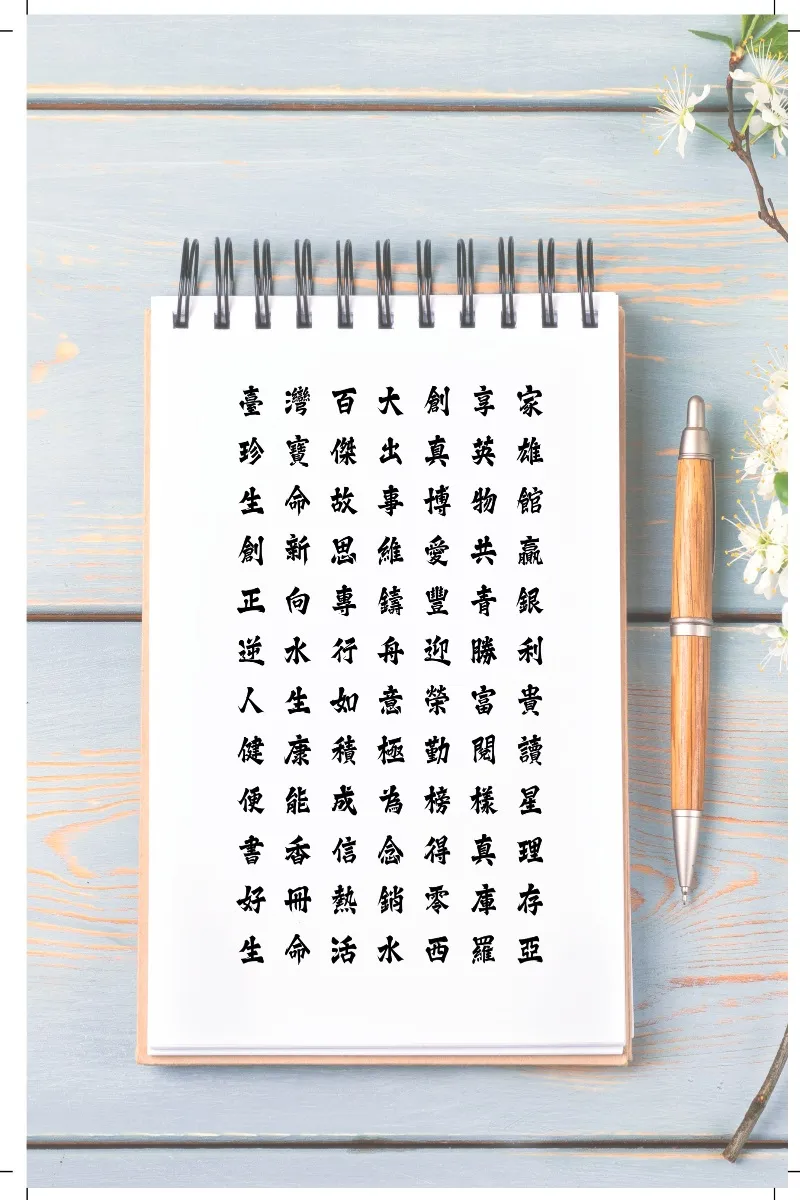 臺灣百大創享家
珍寶傑出真英雄
生命故事博物館
創新思維愛共贏
正向專鑄豐青銀
逆水行舟迎勝利
人生如意榮富貴
健康積極勤閱讀
便能成為榜樣星
書香信念得真理
好冊熱銷零庫存
生命活水西羅亞